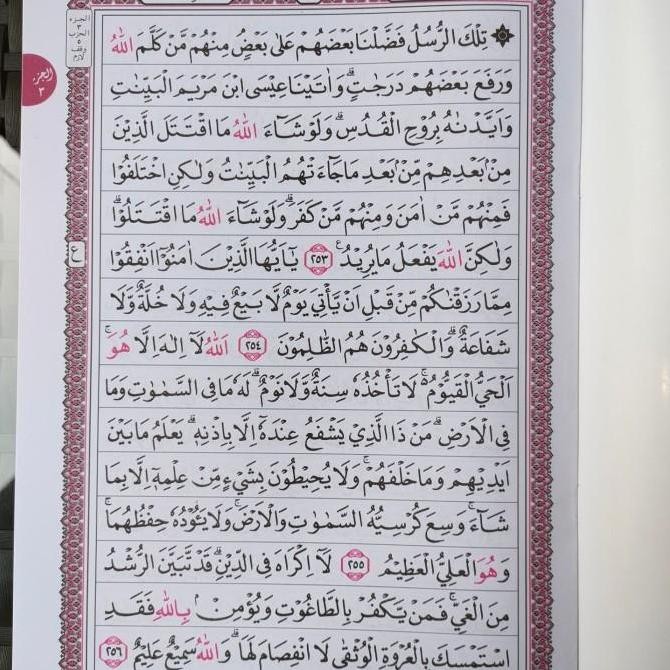 الجزء
٣
الحزب
٥
وقف
لازم
الجزء
٣
۞ تِلْكَ الرُّسُلُ فَضَّلْنَا بَعْضَهُمْ عَلٰى بَعْضٍۘ مِنْهُمْ مَّنْ كَلَّمَ اللّٰهُ
وَرَفَعَ بَعْضَهُمْ دَرَجٰتٍۗ وَاٰتَيْنَا عِيْسَى ابْنَ مَرْيَمَ الْبَيِّنٰتِ
وَاَيَّدْنٰهُ بِرُوْحِ الْقُدُسِۗ وَلَوْ شَاۤءَ اللّٰهُ مَا اقْتَتَلَ الَّذِيْنَ
مِنْۢ بَعْدِهِمْ مِّنْۢ بَعْدِ مَا جَاۤءَتْهُمُ الْبَيِّنٰتُ وَلٰكِنِ اخْتَلَفُوْا
فَمِنْهُمْ مَّنْ اٰمَنَ وَمِنْهُمْ مَّنْ كَفَرَۗ وَلَوْ شَاۤءَ اللّٰهُ مَا اقْتَتَلُوْاۗ
وَلٰكِنَّ اللّٰهَ يَفْعَلُ مَا يُرِيْدُ ࣖ ٢٥٣ يٰٓاَيُّهَا الَّذِيْنَ اٰمَنُوْٓا اَنْفِقُوْا
ع
مِمَّا رَزَقْنٰكُمْ مِّنْ قَبْلِ اَنْ يَّأْتِيَ يَوْمٌ لَّا بَيْعٌ فِيْهِ وَلَا خُلَّةٌ وَّلَا
شَفَاعَةٌۗ وَالْكٰفِرُوْنَ هُمُ الظّٰلِمُوْنَ ٢٥٤ اَللّٰهُ لَآ اِلٰهَ اِلَّا هُوَۚ
اَلْحَيُّ الْقَيُّوْمُ ەۚ لَا تَأْخُذُهٗ سِنَةٌ وَّلَا نَوْمٌۗ لَهٗ مَا فِى السَّمٰوٰتِ وَمَا
فِى الْاَرْضِۗ مَنْ ذَا الَّذِيْ يَشْفَعُ عِنْدَهٗٓ اِلَّا بِاِذْنِهٖۗ يَعْلَمُ مَا بَيْنَ
اَيْدِيْهِمْ وَمَا خَلْفَهُمْۚ وَلَا يُحِيْطُوْنَ بِشَيْءٍ مِّنْ عِلْمِهٖٓ اِلَّا بِمَا
شَاۤءَۚ وَسِعَ كُرْسِيُّهُ السَّمٰوٰتِ وَالْاَرْضَۚ وَلَا يَـُٔوْدُهٗ حِفْظُهُمَاۚ
وَهُوَ الْعَلِيُّ الْعَظِيْمُ ٢٥٥ لَآ اِكْرَاهَ فِى الدِّيْنِۗ قَدْ تَّبَيَّنَ الرُّشْدُ
مِنَ الْغَيِّۚ فَمَنْ يَّكْفُرْ بِالطَّاغُوْتِ وَيُؤْمِنْۢ بِاللّٰهِ فَقَدِ
اسْتَمْسَكَ بِالْعُرْوَةِ الْوُثْقٰى لَا انْفِصَامَ لَهَاۗ وَاللّٰهُ سَمِيْعٌ عَلِيْمٌ ٢٥٦